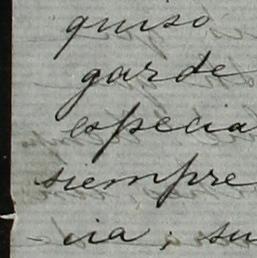 quiso
garde
especia
siempre
cia, su